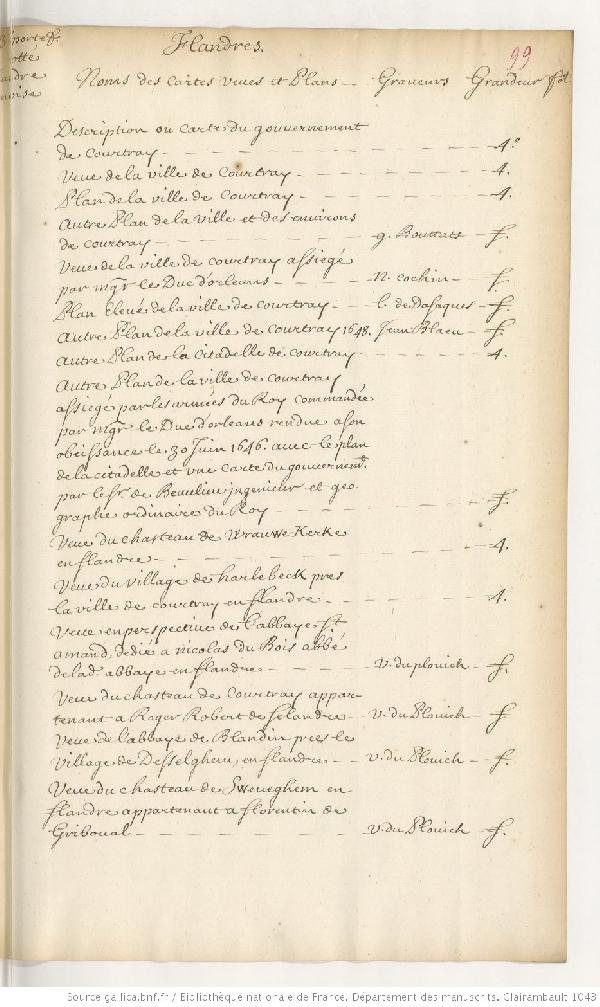 3e portef.
cotté
flandre
Flandres.
99
Noms des Cartes veues et Plans — Graveurs Grandeur fol
Description ou Carte du gouvernement
de Courtray — 4.º
Veue de la ville de Courtray — 4.
Plan de la ville de Courtray — 4.
Autre Plan de la ville et des environs
de Courtray — g. Bouttats — f.
Veue de la ville de Courtray assiegé
par mgr. le Duc d'orleans — n. cochin — f.
Plan elevé de la ville de Courtray — l. de Dasaques — f.
Autre Plan de la ville de Courtray 1648. Jean Blaeu — f.
Autre Plan de la Citadelle de Courtray — 4.
Autre Plan de la ville de Courtray
assiegé par les armées du Roy commandée
par mgr. le Duc d'orleans rendue a son
obeissance le 30 Juin 1646. avec le plan
de la citadelle et vne carte du gouvernemt.
par le sr. de Beaulieu jngenieur et geo-
graphe ordinaire du Roy — f.
Veue du chasteau de Wrauwe Kerke
en flandre — 4.
Veue du village de harlebeck pres
la ville de Courtray en flandre — 4.
Veue en perspective de l'abbaye St.
amand, dedié a nicolas du Bois abbé
de lad. abbaye en flandre — v. du plouich — f.
Veue du chasteau de Courtray appar-
tenant a Roger Robert de — v. du Plouich — f
Veue de l'abbaye de Blandin pres le
village de Desselghem, en flandre — v. du Plouich — f.
Veue du chasteau de Sweveghem en
flandre appartenant a florentin de
Griboual — v. du Plouich — f.
Source gallica.bnf.fr / Bibliothèque nationale de France. Département des manuscrits. Clairambault 1043